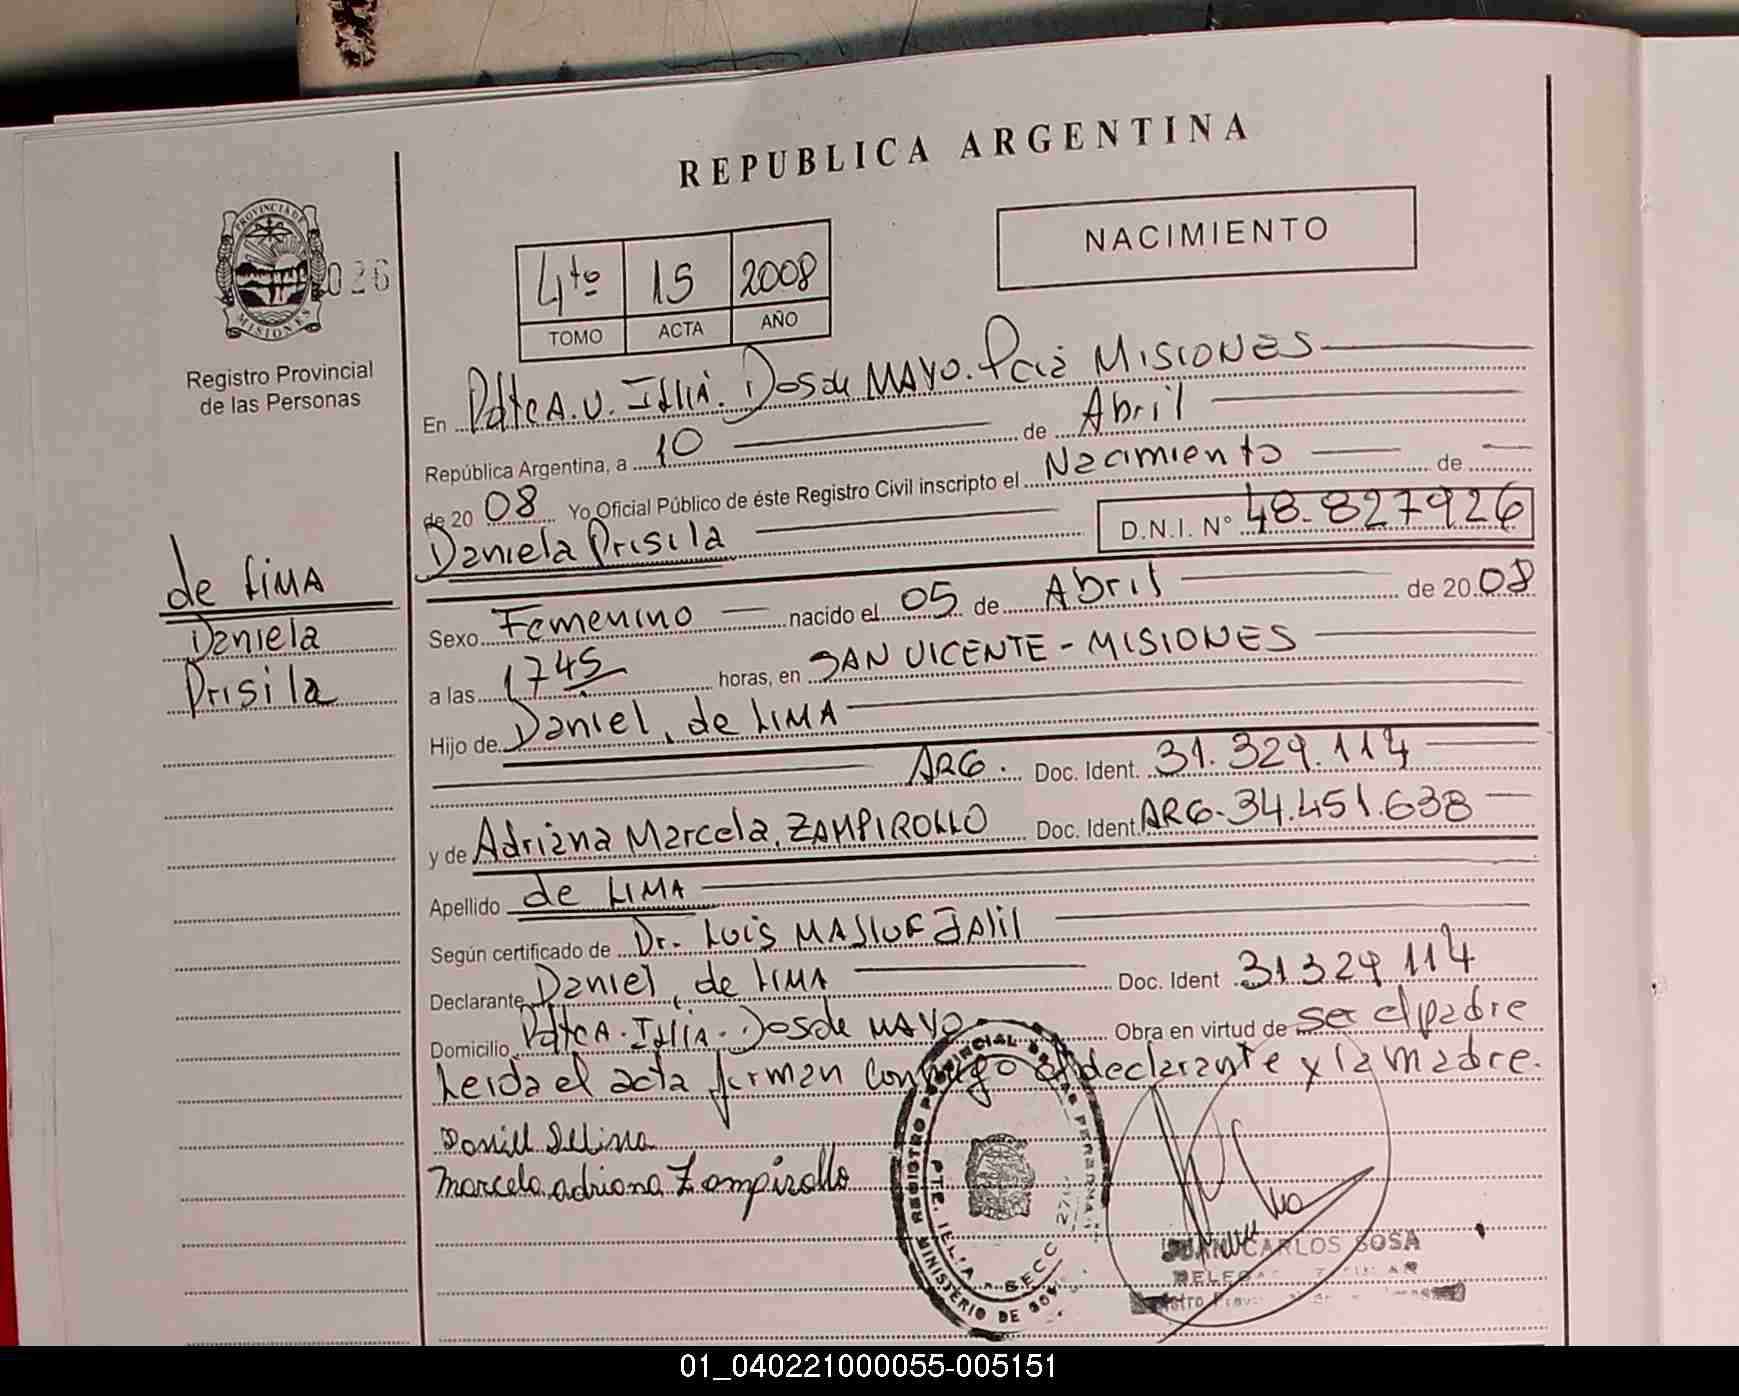 REPUBLICA ARGENTINA
NACIMIENTO
PROVINCIA DE
MISIONES
026
Registro Provincial
de las Personas
4to 15 2008
TOMO ACTA AÑO
En Pdte A. U. Illia. Dos de MAYO. Pcia MISIONES
República Argentina, a 10 de Abril
de 2008 Yo Oficial Público de éste Registro Civil inscripto el Nacimiento de
Daniela Prisila D.N.I. N° 48.827926
de LIMA
Daniela
Prisila
Sexo Femenino nacido el 05 de Abril de 2008
a las 1745 horas, en SAN VICENTE - MISIONES
Hijo de Daniel, de LIMA
ARG. Doc. Ident. 31.329.114
y de Adriana Marcela, ZAMPIROLLO Doc. Ident. ARG. 34.451.638
Apellido de LIMA
Según certificado de Dr. LUIS MASLUF JALIL
Declarante Daniel, de LIMA Doc. Ident 31329114
Domicilio Pdte A. Illia. Dos de MAYO Obra en virtud de ser el padre
Leida el acta firman conmigo el declarante y la madre.
Daniel Delima
Marcela adriana Zampirollo
REGISTRO PROVINCIAL DE LAS PERSONAS
PTE. ILLIA - SECC. 270
MINISTERIO DE GOB
JUAN CARLOS SOSA
01_040221000055-005151